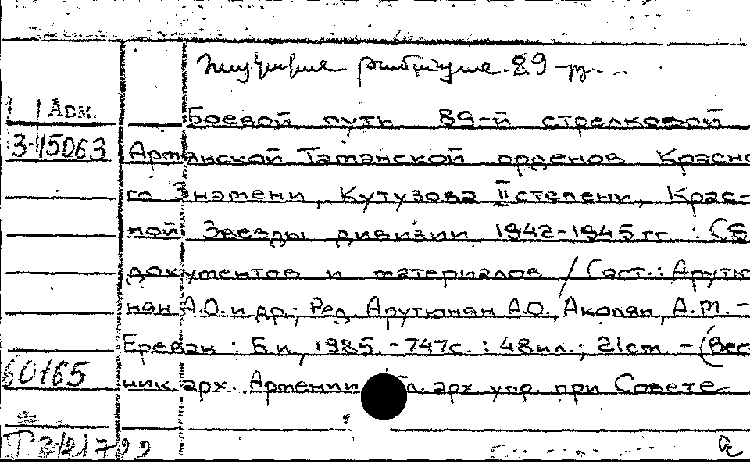 89-
Арм.
Боевой путь 89-й стрелковой
3-15063
Армянской Таманской орденов Красно
го Знамени, Кутузова II степени, Крас-
ной Звезды дивизии 1942-1945 гг. : Сб
документов и материалов / Сост.: Арутю
нян А.О. и др.; Ред. Арутюнян А.О., Акопян, А.М. -
Ереван : Б.и., 1985. - 747с. : 48 ил.; 21см. - (Вест
60165
ник арх. Армении арх. упр. при Совете